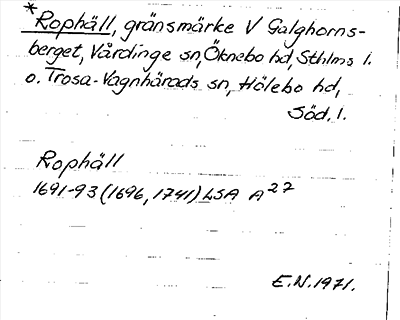 * Rophäll, gränsmärke V Galghorns-
berget, Vårdinge sn, Öknebo hd, Sthlms l.
o. Trosa-Vagnhärads sn, Hölebo hd,
Söd. l.
Rophäll
1691-93 (1696, 1741) LSA A 27
E.N. 1971.